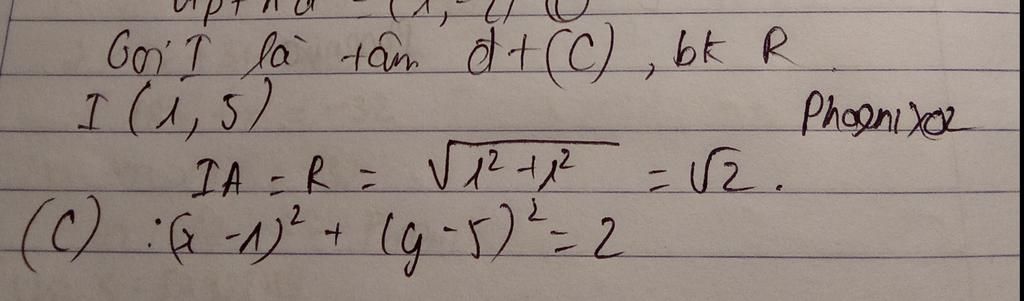 Gọi I là tâm đt (C), bk R
I (1, 5)
Phoenixoz
IA = R = √1² + 1² = √2.
(C) : (x - 1)² + (y - 5)² = 2